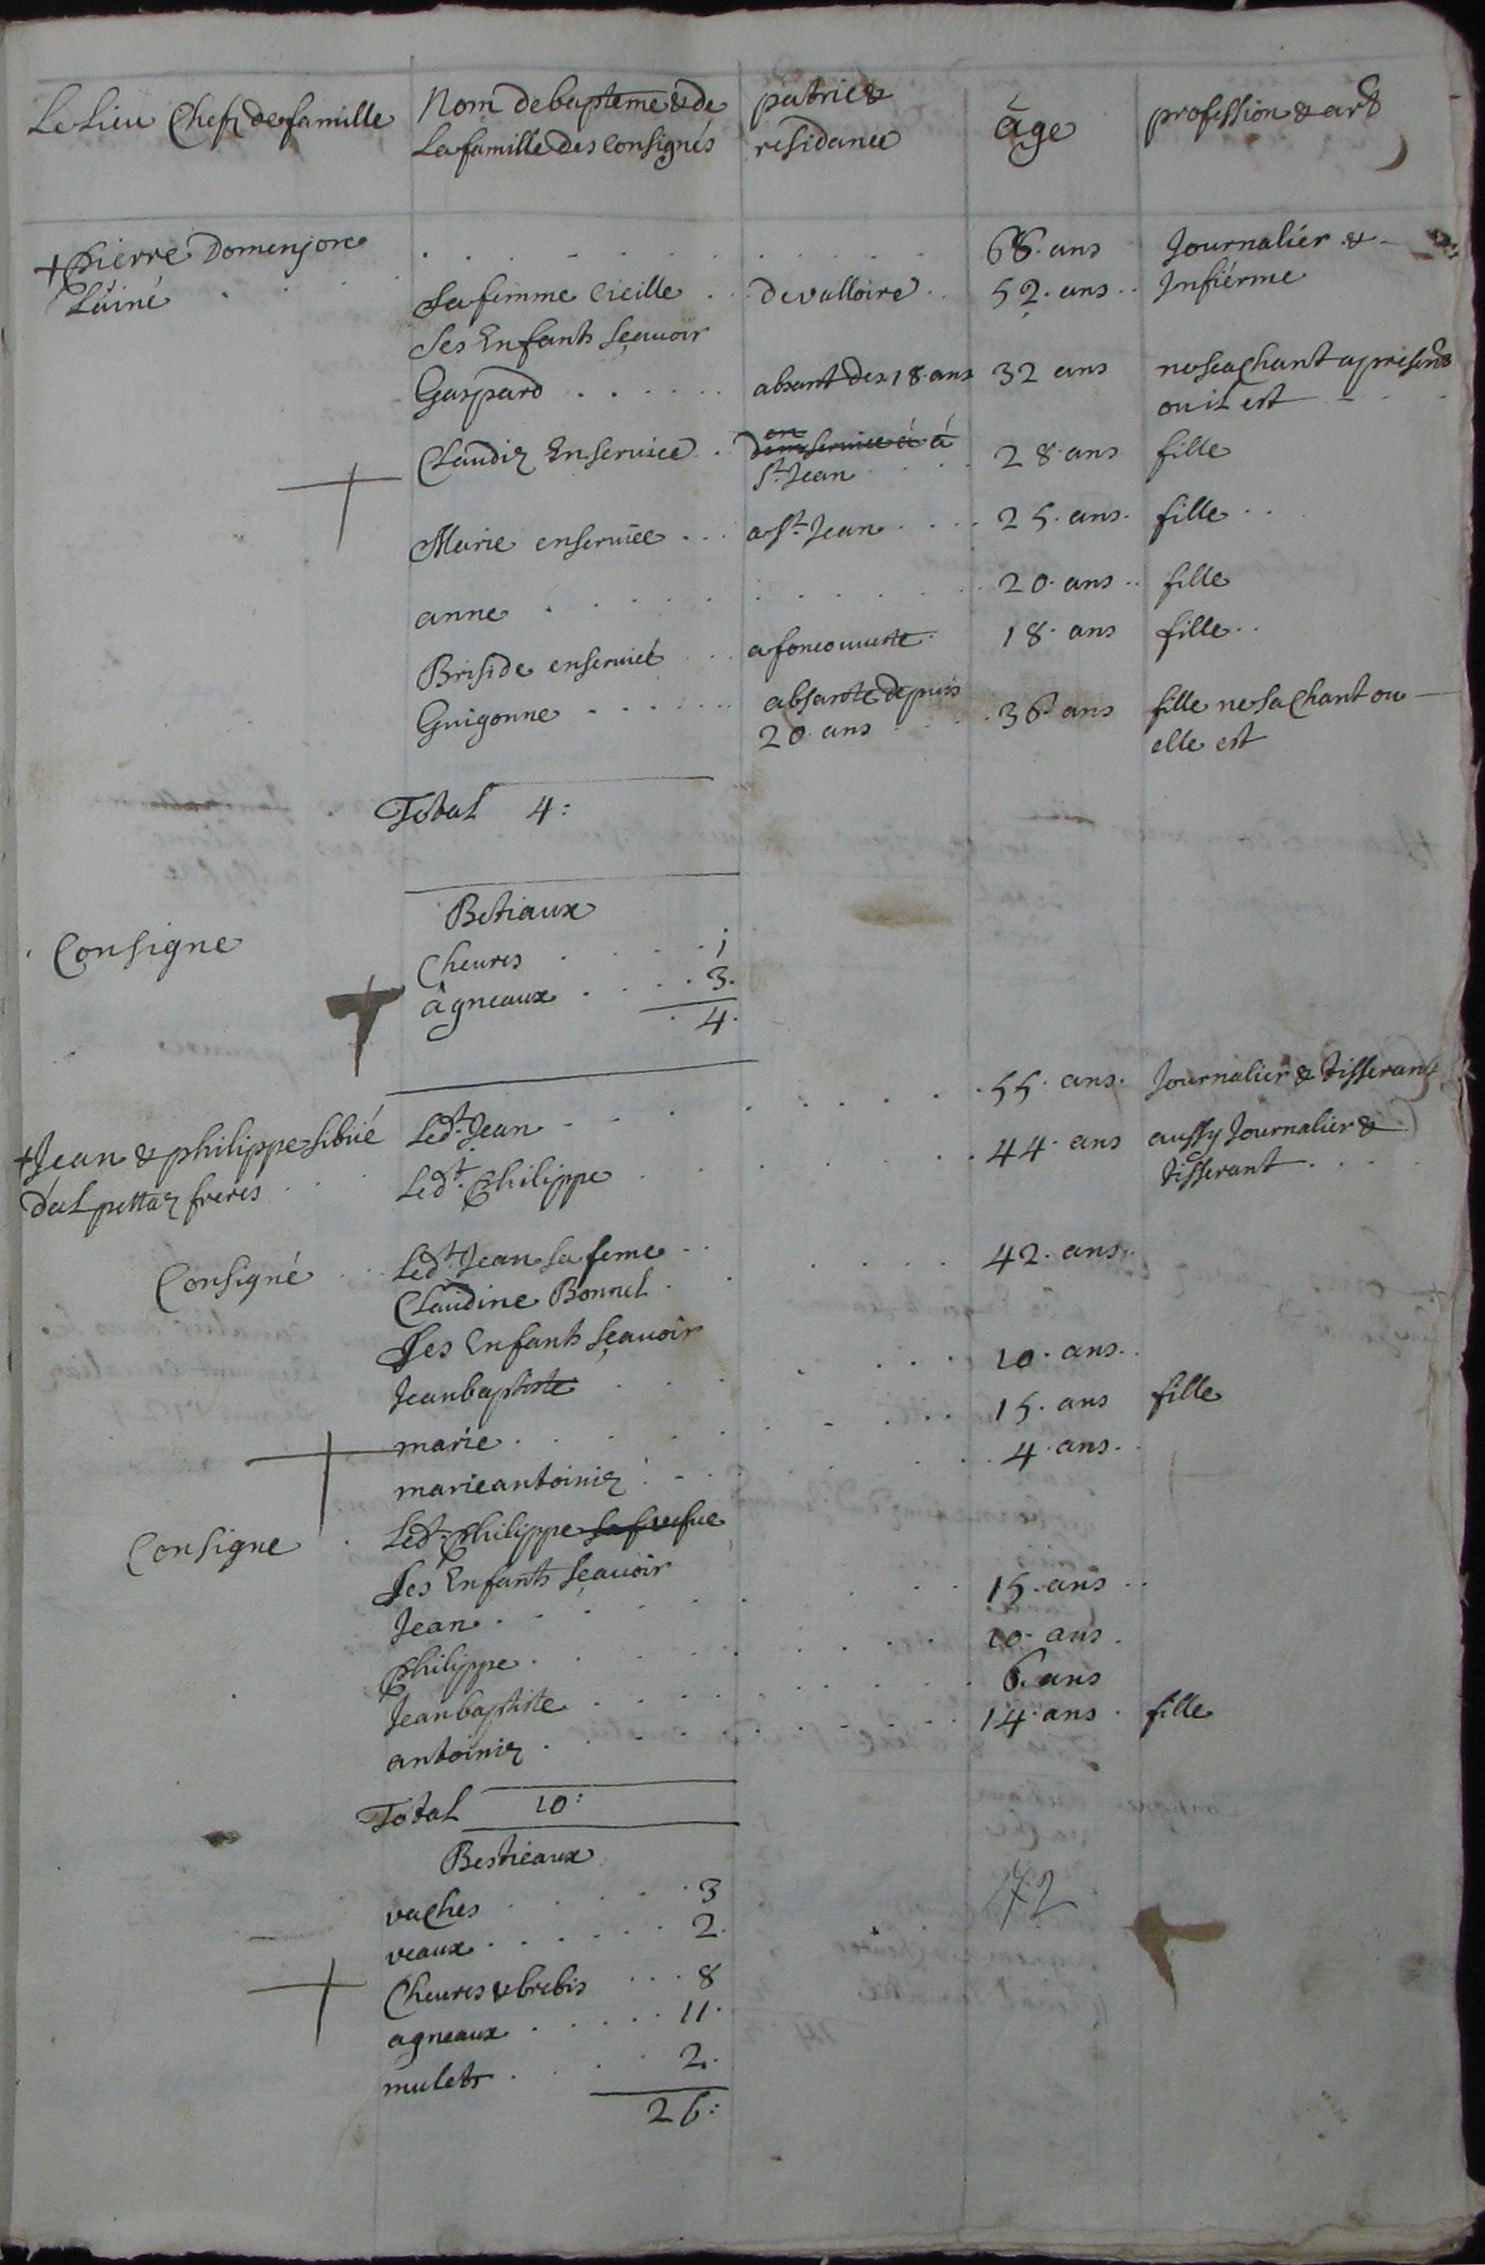 Le Lieu Chefs de famille
Nom de bapteme & de
La famille des Consignés
patrie &
residance
âge
profession & art
+ Pierre Domenjon
L'ainé
68. ans Journalier &
Sa femme Vieille de valloire 52. ans Infiérme
Ses Enfants sçauoir
Gaspard absant des 18. ans 32 ans ne scachant apresent
ou il est
Claudiz En seruice
en
seruice a à
St Jean 28 ans fille
Marie en seruice a St Jean 25. ans. fille
anne 20. ans fille
Briside en seruice a foncouuerte 18. ans fille
Guigonne absante depuis
20 ans 36 ans fille ne sachant ou
elle est
Total 4:
Consigne
Betiaux
Cheures 1
âgneaux 3.
4.
+ Jean & philippe sibué
d'alpettaz freres
Ledt Jean 55. ans. Journalier & tisserant
Ledt Philippe 44. ans aussy Journalier &
tisserant
Consigné
Ledt Jean sa feme 42. ans
Claudine Bonnel
Ses Enfants sçauoir
Jean baptiste 10. ans
marie 15. ans fille
marie antoiniz 4 ans
Consigne Ledt Philippe
Ses Enfants sçauoir
Jean 15. ans
Philippe 10. ans
Jean baptiste 6. ans
antoiniz 14. ans fille
Total 10:
Bestieaux
vaches 3
veaux 2.
Cheures & brebis 8
agneaux 11.
mulets 2.
26:
72